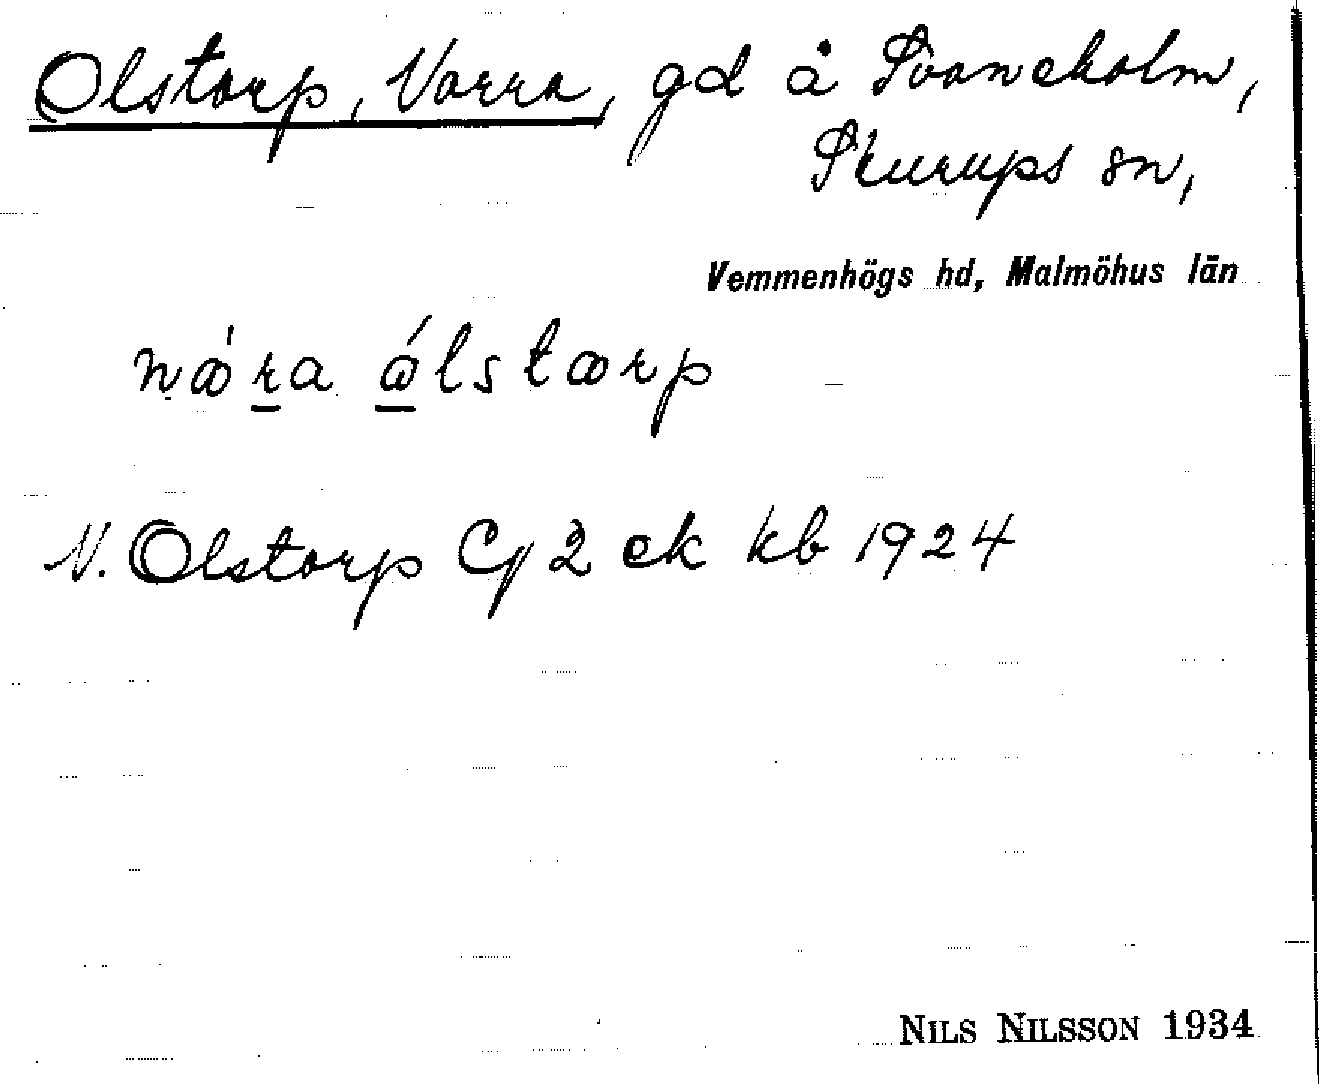 Olstorp, Norra, gd å Svaneholm,
Skurups sn,
Vemmenhögs hd, Malmöhus län
nǿra ǿlstœrp
N. Olstorp Cg 2 ek kb 1924
NILS NILSSON 1934